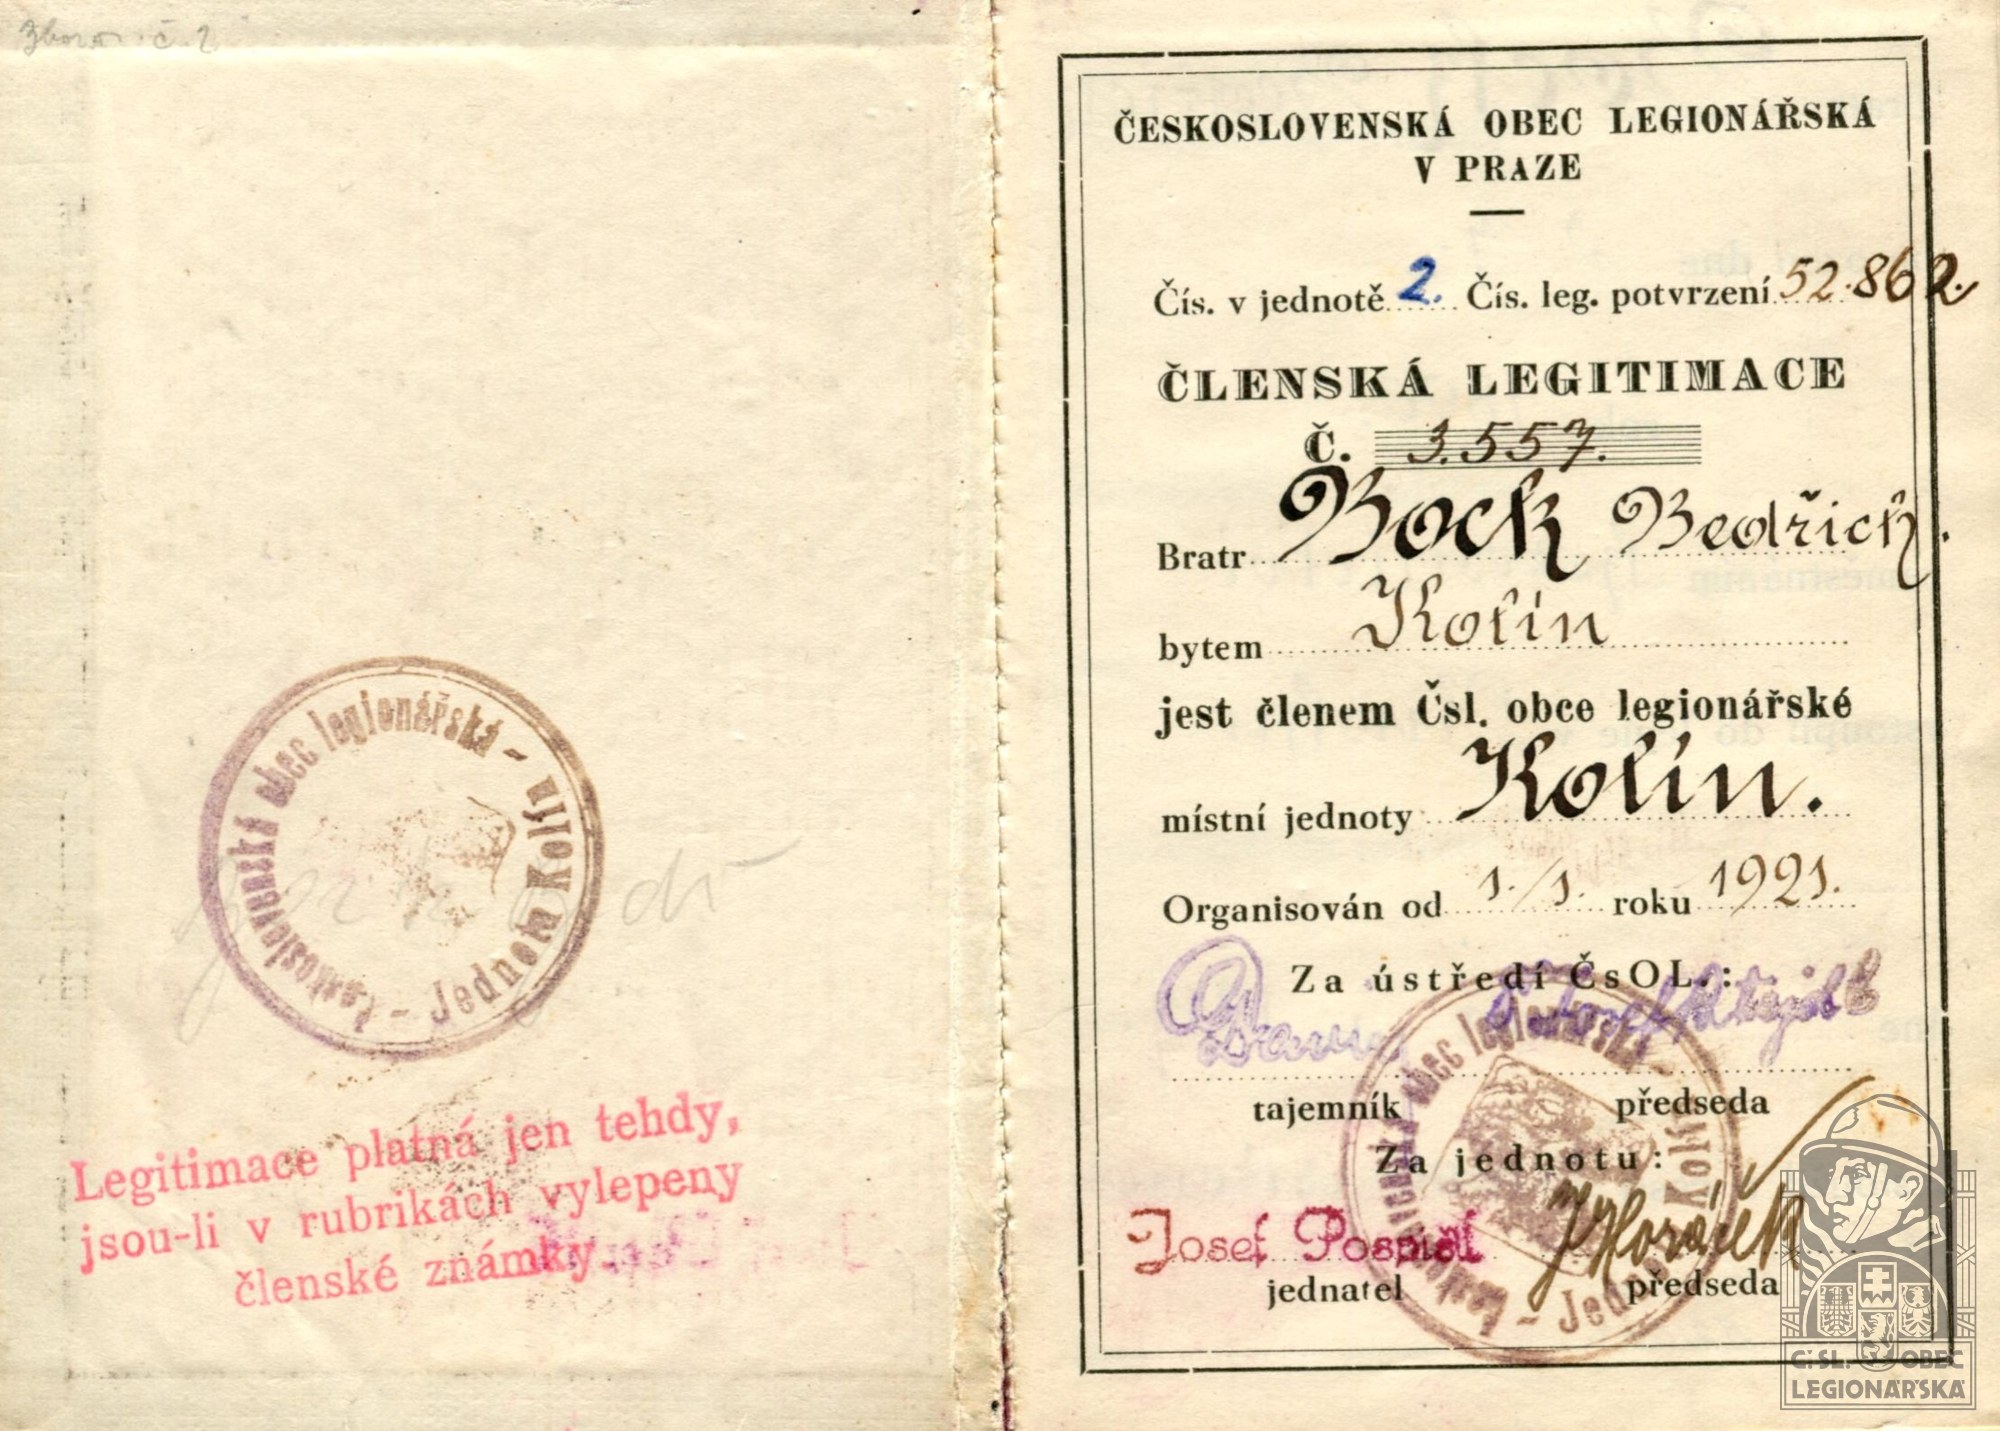 č. 2
Československá obec legionářská – Jednota Kolín –
Legitimace platná jen tehdy,
jsou-li v rubrikách vylepeny
členské známky.
ČESKOSLOVENSKÁ OBEC LEGIONÁŘSKÁ
V PRAZE
Čís. v jednotě 2. Čís. leg. potvrzení 52.862.
ČLENSKÁ LEGITIMACE
Č. 3.557.
Bratr Bock Bedřich.
bytem Kolín
jest členem Čsl. obce legionářské
místní jednoty Kolín.
Organisován od 1./1. roku 1921.
Za ústředí ČsOL.:
tajemník předseda
Za jednotu:
Josef Pospíšil JHoráček
jednatel předseda
Č.SL. OBEC
LEGIONÁŘSKÁ